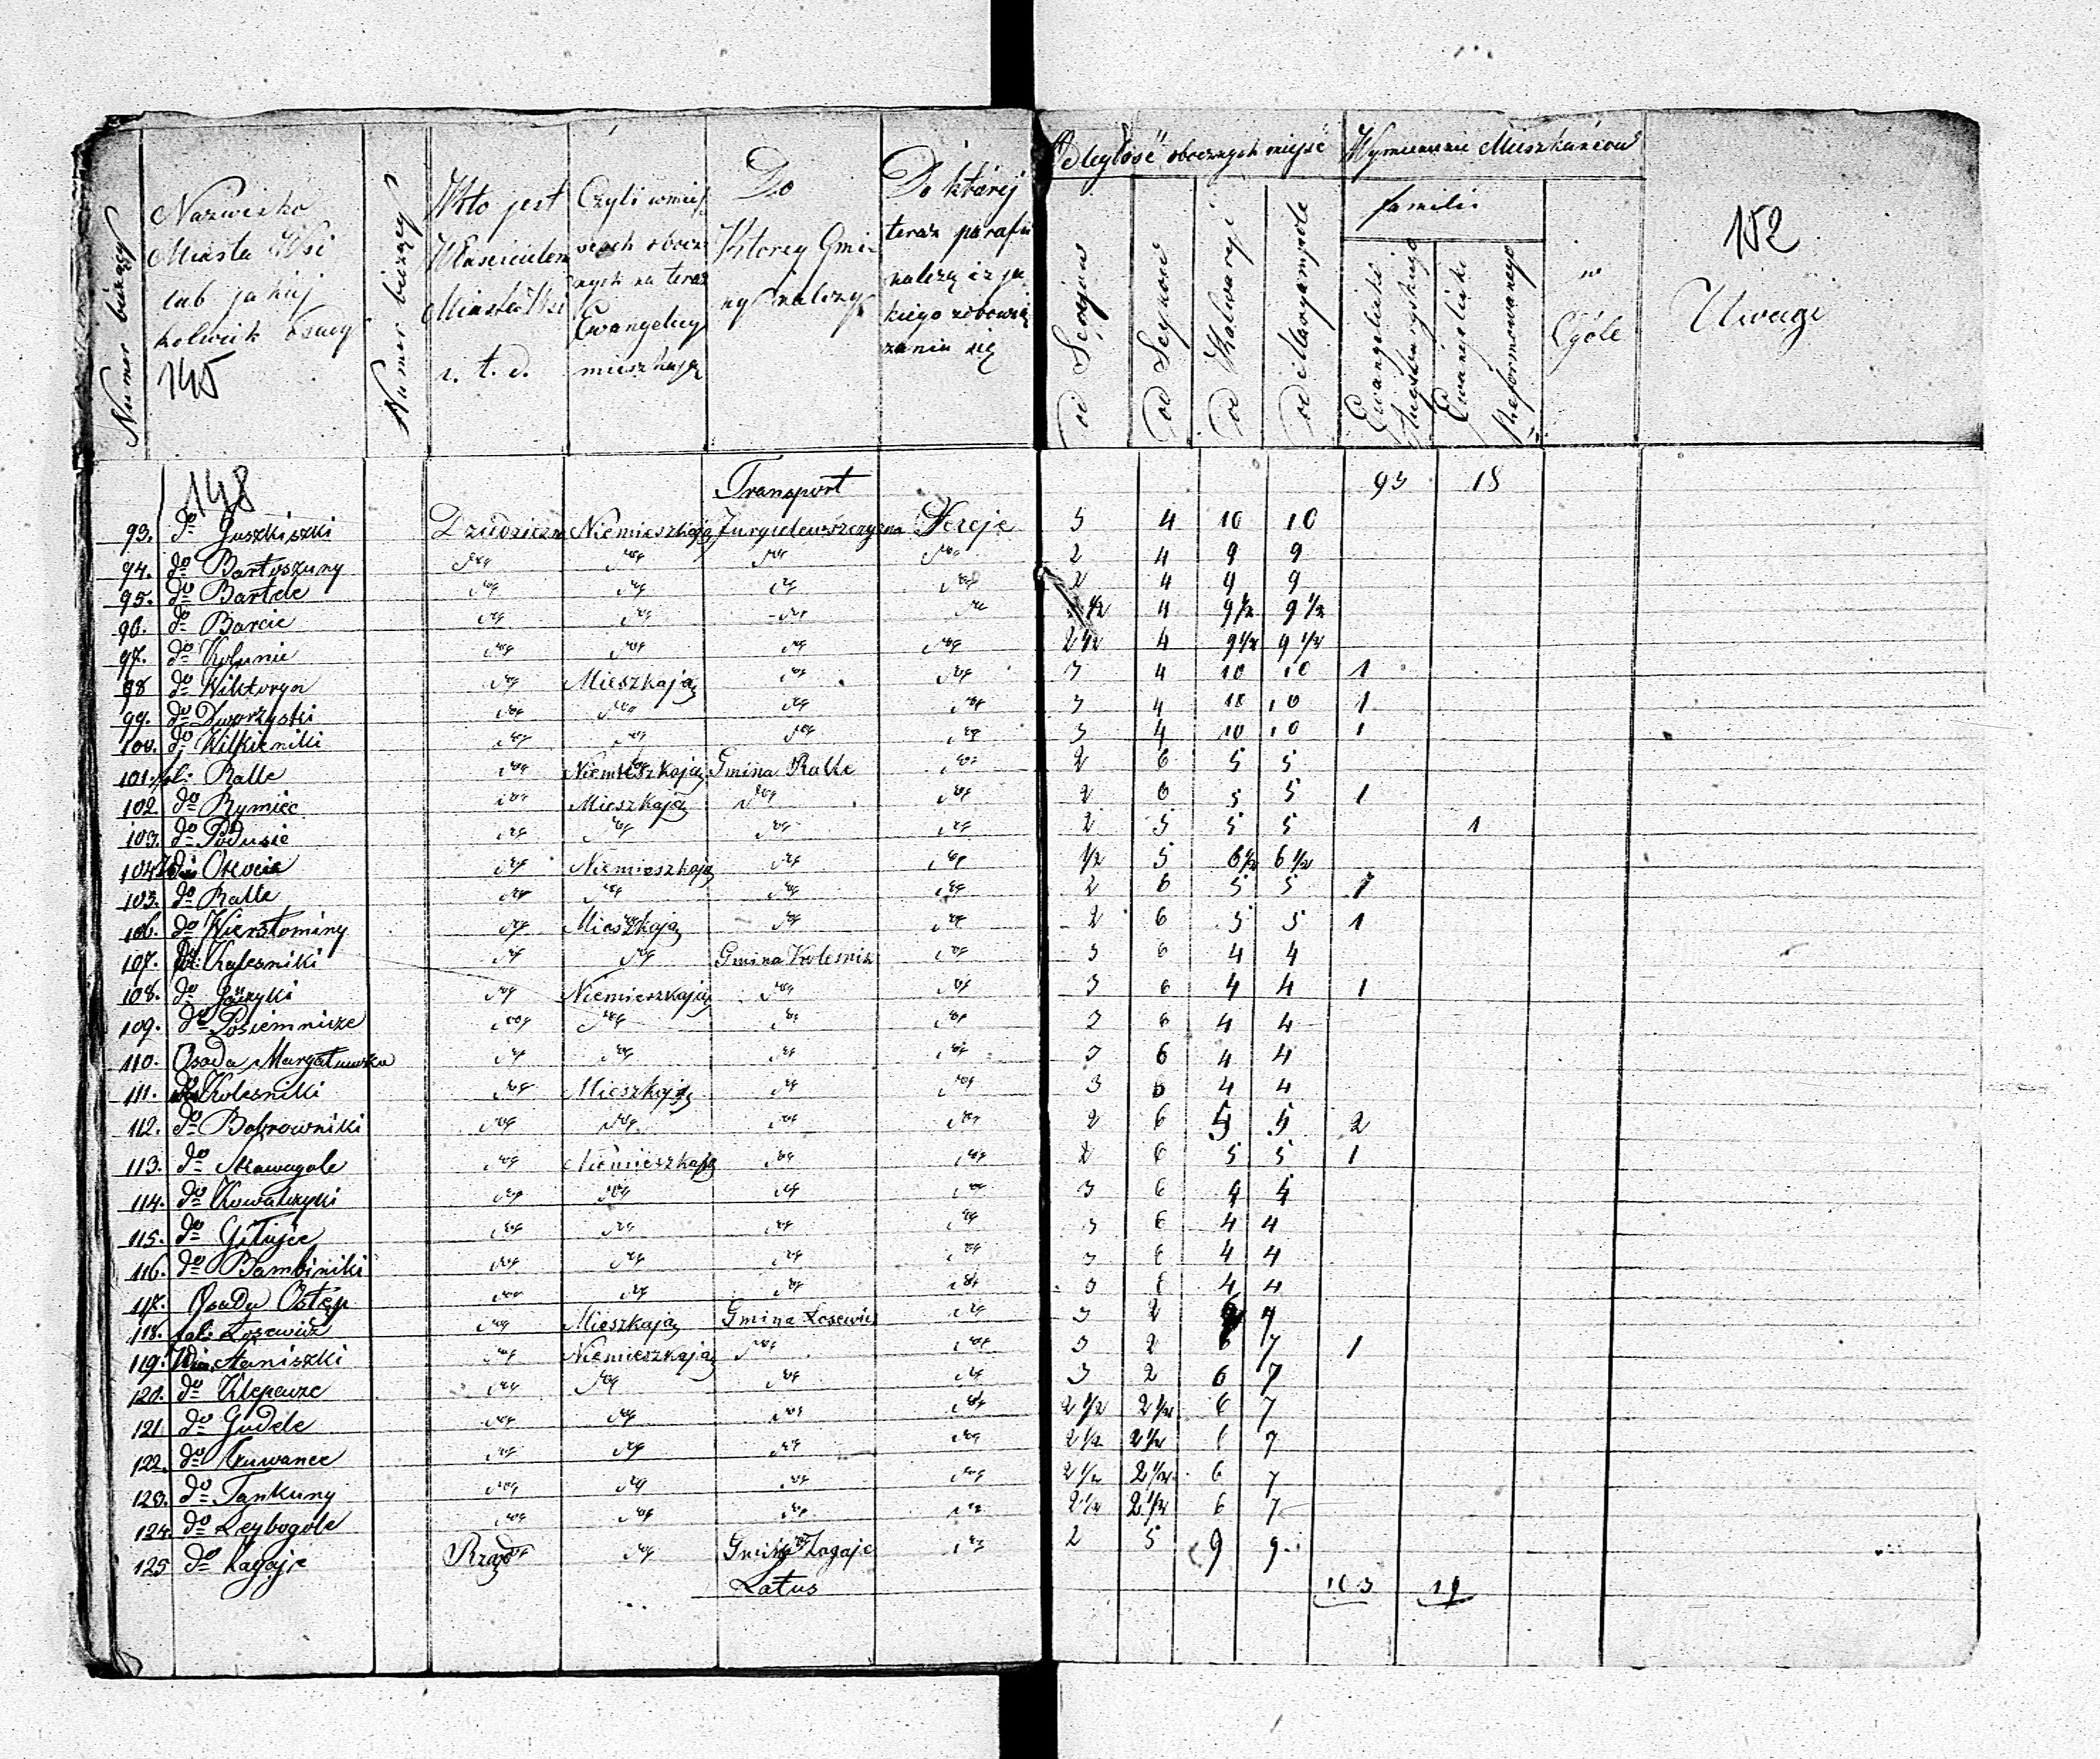 Numer bieżący
Nazwisko Miasta Wsi lub jakiej kolwiek Osady
145
Numer bieżący
Kto jest Właścicielem Miasta Wsi i. t. d.
Czyli w miejscach obocznych na teraz Ewangelicy mieszkają
Do Ktorey Gminy należy
Do którey teraz parafii należą i z jakiego zobowiązania się
Odległość obocznych miejsc
od Sereyow
od Seynow
od Kalwaryi
od Maryampola
Wymienienie Mieszkańców
familii
Ewangelicki Augsburgskiego
Ewangelicki Reformowanego
w Ogóle
152
Uwagi
148
Transport 93 18
93. do Juszkiszki Dziedziczna Niemieszkają Jurgielewszczyzna Sereje 3 4 10 10
94. do Bartoszuny do do do do 2 4 9 9
95. do Bartele do do do do 2 4 9 9
96. do Barcie do do do do 1/2 4 9 1/2 9 1/2
97. do Kolunie do do do do 2 1/2 4 9 1/2 9 1/2
98 do Wiktorya do Mieszkają do do 3 4 10 10 1
99. do Dworzyski do do do do 3 4 10 10 1
100. do Wilkieniki do do do do 3 4 10 10 1
101. fol: Ralle do Niemieszkają Gmina Ralle do 2 6 5 5
102. do Rymiec do Mieszkają do do 2 6 5 5 1
103. do Podusie do do do do 2 5 5 5 1
104 Wieś do Niemieszkają do do 1/2 5 6 1/2 6 1/2
105. do Ralle do do do do 2 6 5 5 1
106. do Wierstominy do Mieszkają do do 2 6 5 5 1
107. fol: Kalesniki do do Gmina Kolesnik do 3 6 4 4
108. do do Niemieszkają do do 3 6 4 4 1
109. do Posiemnicze do do do do 3 6 4 4
110. Osada do do do do 3 6 4 4
111. Wieś Kolesniki do Mieszkają do do 3 6 4 4
112. do Bobrowniki do do do do 2 6 5 5 2
113. do Strawagole do Niemieszkają do do 2 6 5 5 1
114. do Kowalczyki do do do do 3 6 4 4
115. do Giłujce do do do do 3 6 4 4
116. do Bambiniki do do do do 3 6 4 4
117. Osada Ostęp do do do do 3 6 4 4
118. fol: Łosewicz do Mieszkają Gmina Łosewicz do 3 2 7
119. Wieś Staniszki do Niemieszkają do do 3 2 6 7 1
120. do Klepacze do do do do 3 2 6 7
121 do Gudele do do do do 2 1/2 2 1/2 6 7
122. do Truwance do do do do 2 1/2 2 1/2 6 7
123. do Tankuny do do do do 2 1/2 2 1/2 6 7
124. do Leybogole do do do do 2 1/2 2 1/2 6 7
125 do Zagaje Rząd do Gmina Zagaje do 2 5 9 9
Latus 103 19